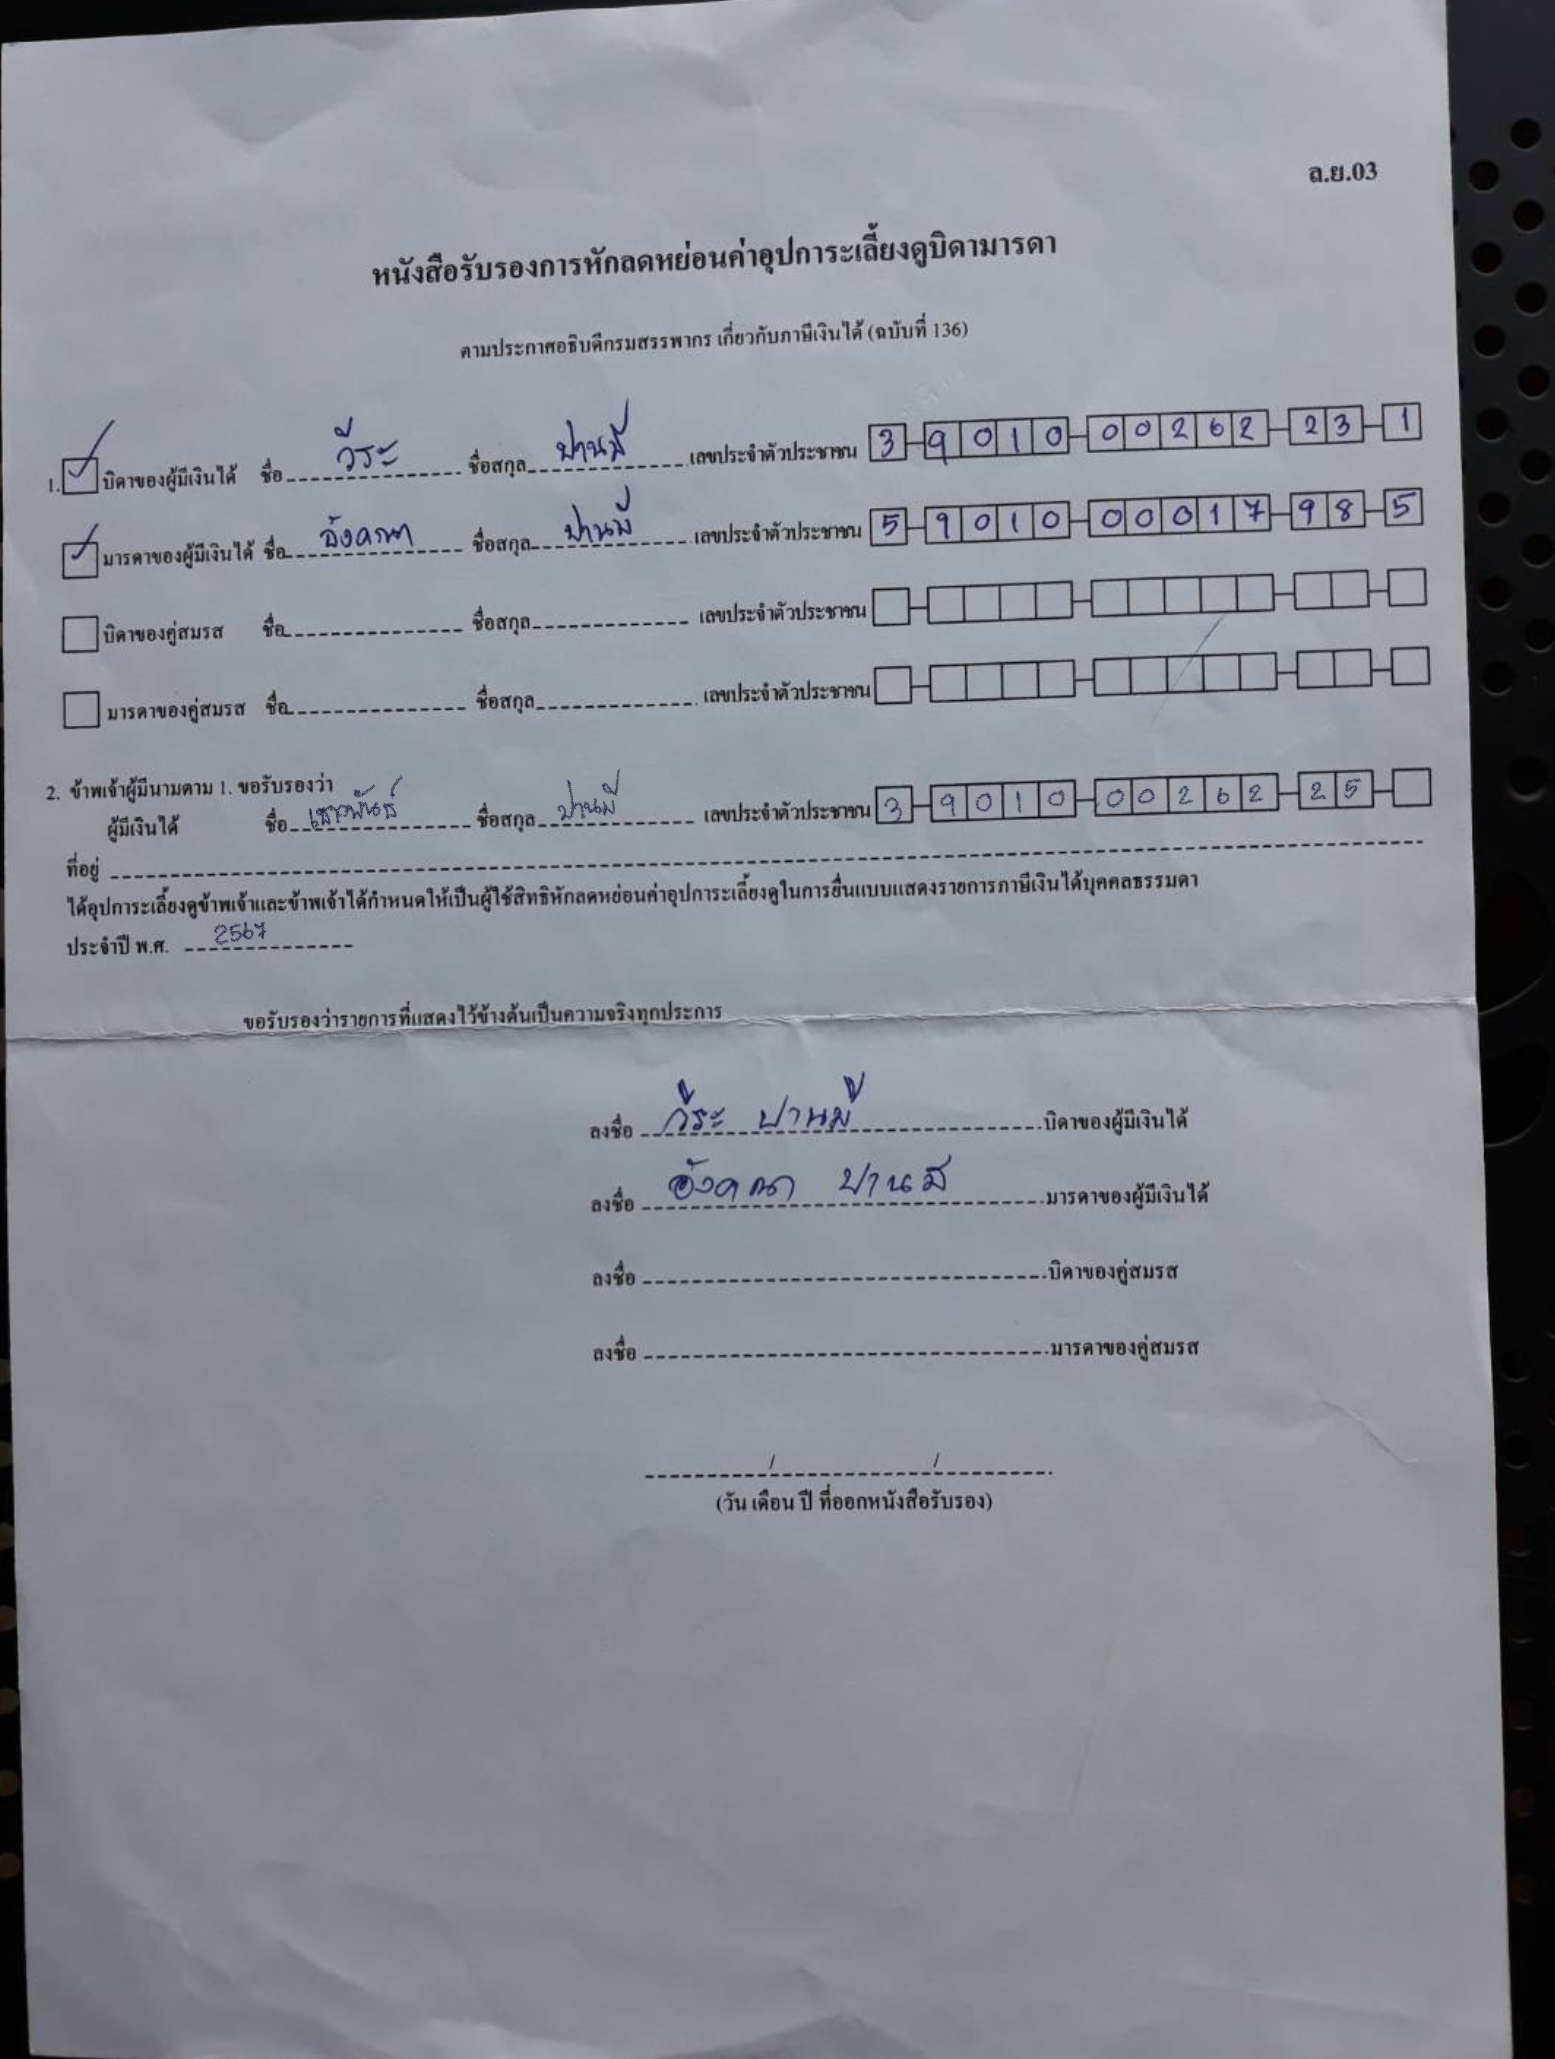 ล.ย.03
หนังสือรับรองการหักลดหย่อนค่าอุปการะเลี้ยงดูบิดามารดา
ตามประกาศอธิบดีกรมสรรพากร เกี่ยวกับภาษีเงินได้ (ฉบับที่ 136)
1. บิดาของผู้มีเงินได้ ชื่อ วีระ ชื่อสกุล ปานมี เลขประจำตัวประชาชน 3-9010-00262-23-1
มารดาของผู้มีเงินได้ ชื่อ อังคณา ชื่อสกุล ปานมี เลขประจำตัวประชาชน 5-9010-00017-98-5
บิดาของคู่สมรส ชื่อ ชื่อสกุล เลขประจำตัวประชาชน
มารดาของคู่สมรส ชื่อ ชื่อสกุล เลขประจำตัวประชาชน
2. ข้าพเจ้าผู้มีนามตาม 1. ขอรับรองว่า
ผู้มีเงินได้ ชื่อ ชื่อสกุล ปานมี เลขประจำตัวประชาชน 3-9010-00262-25-
ที่อยู่
ได้อุปการะเลี้ยงดูข้าพเจ้าและข้าพเจ้าได้กำหนดให้เป็นผู้ใช้สิทธิหักลดหย่อนค่าอุปการะเลี้ยงดูในการยื่นแบบแสดงรายการภาษีเงินได้บุคคลธรรมดา
ประจำปี พ.ศ. 2567
ขอรับรองว่ารายการที่แสดงไว้ข้างต้นเป็นความจริงทุกประการ
ลงชื่อ วีระ ปานมี บิดาของผู้มีเงินได้
ลงชื่อ อังคณา ปานมี มารดาของผู้มีเงินได้
ลงชื่อ บิดาของคู่สมรส
ลงชื่อ มารดาของคู่สมรส
/ /
(วัน เดือน ปี ที่ออกหนังสือรับรอง)